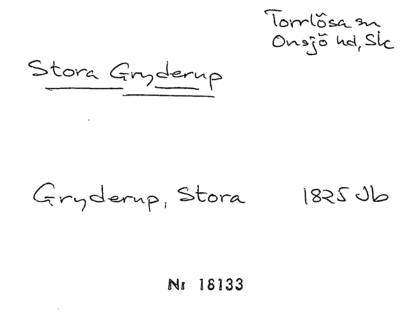 Torrlösa sn
Onsjö hd, Sk
Stora Gryderup
Gryderup, Stora 1825 Jb
Nr 18133